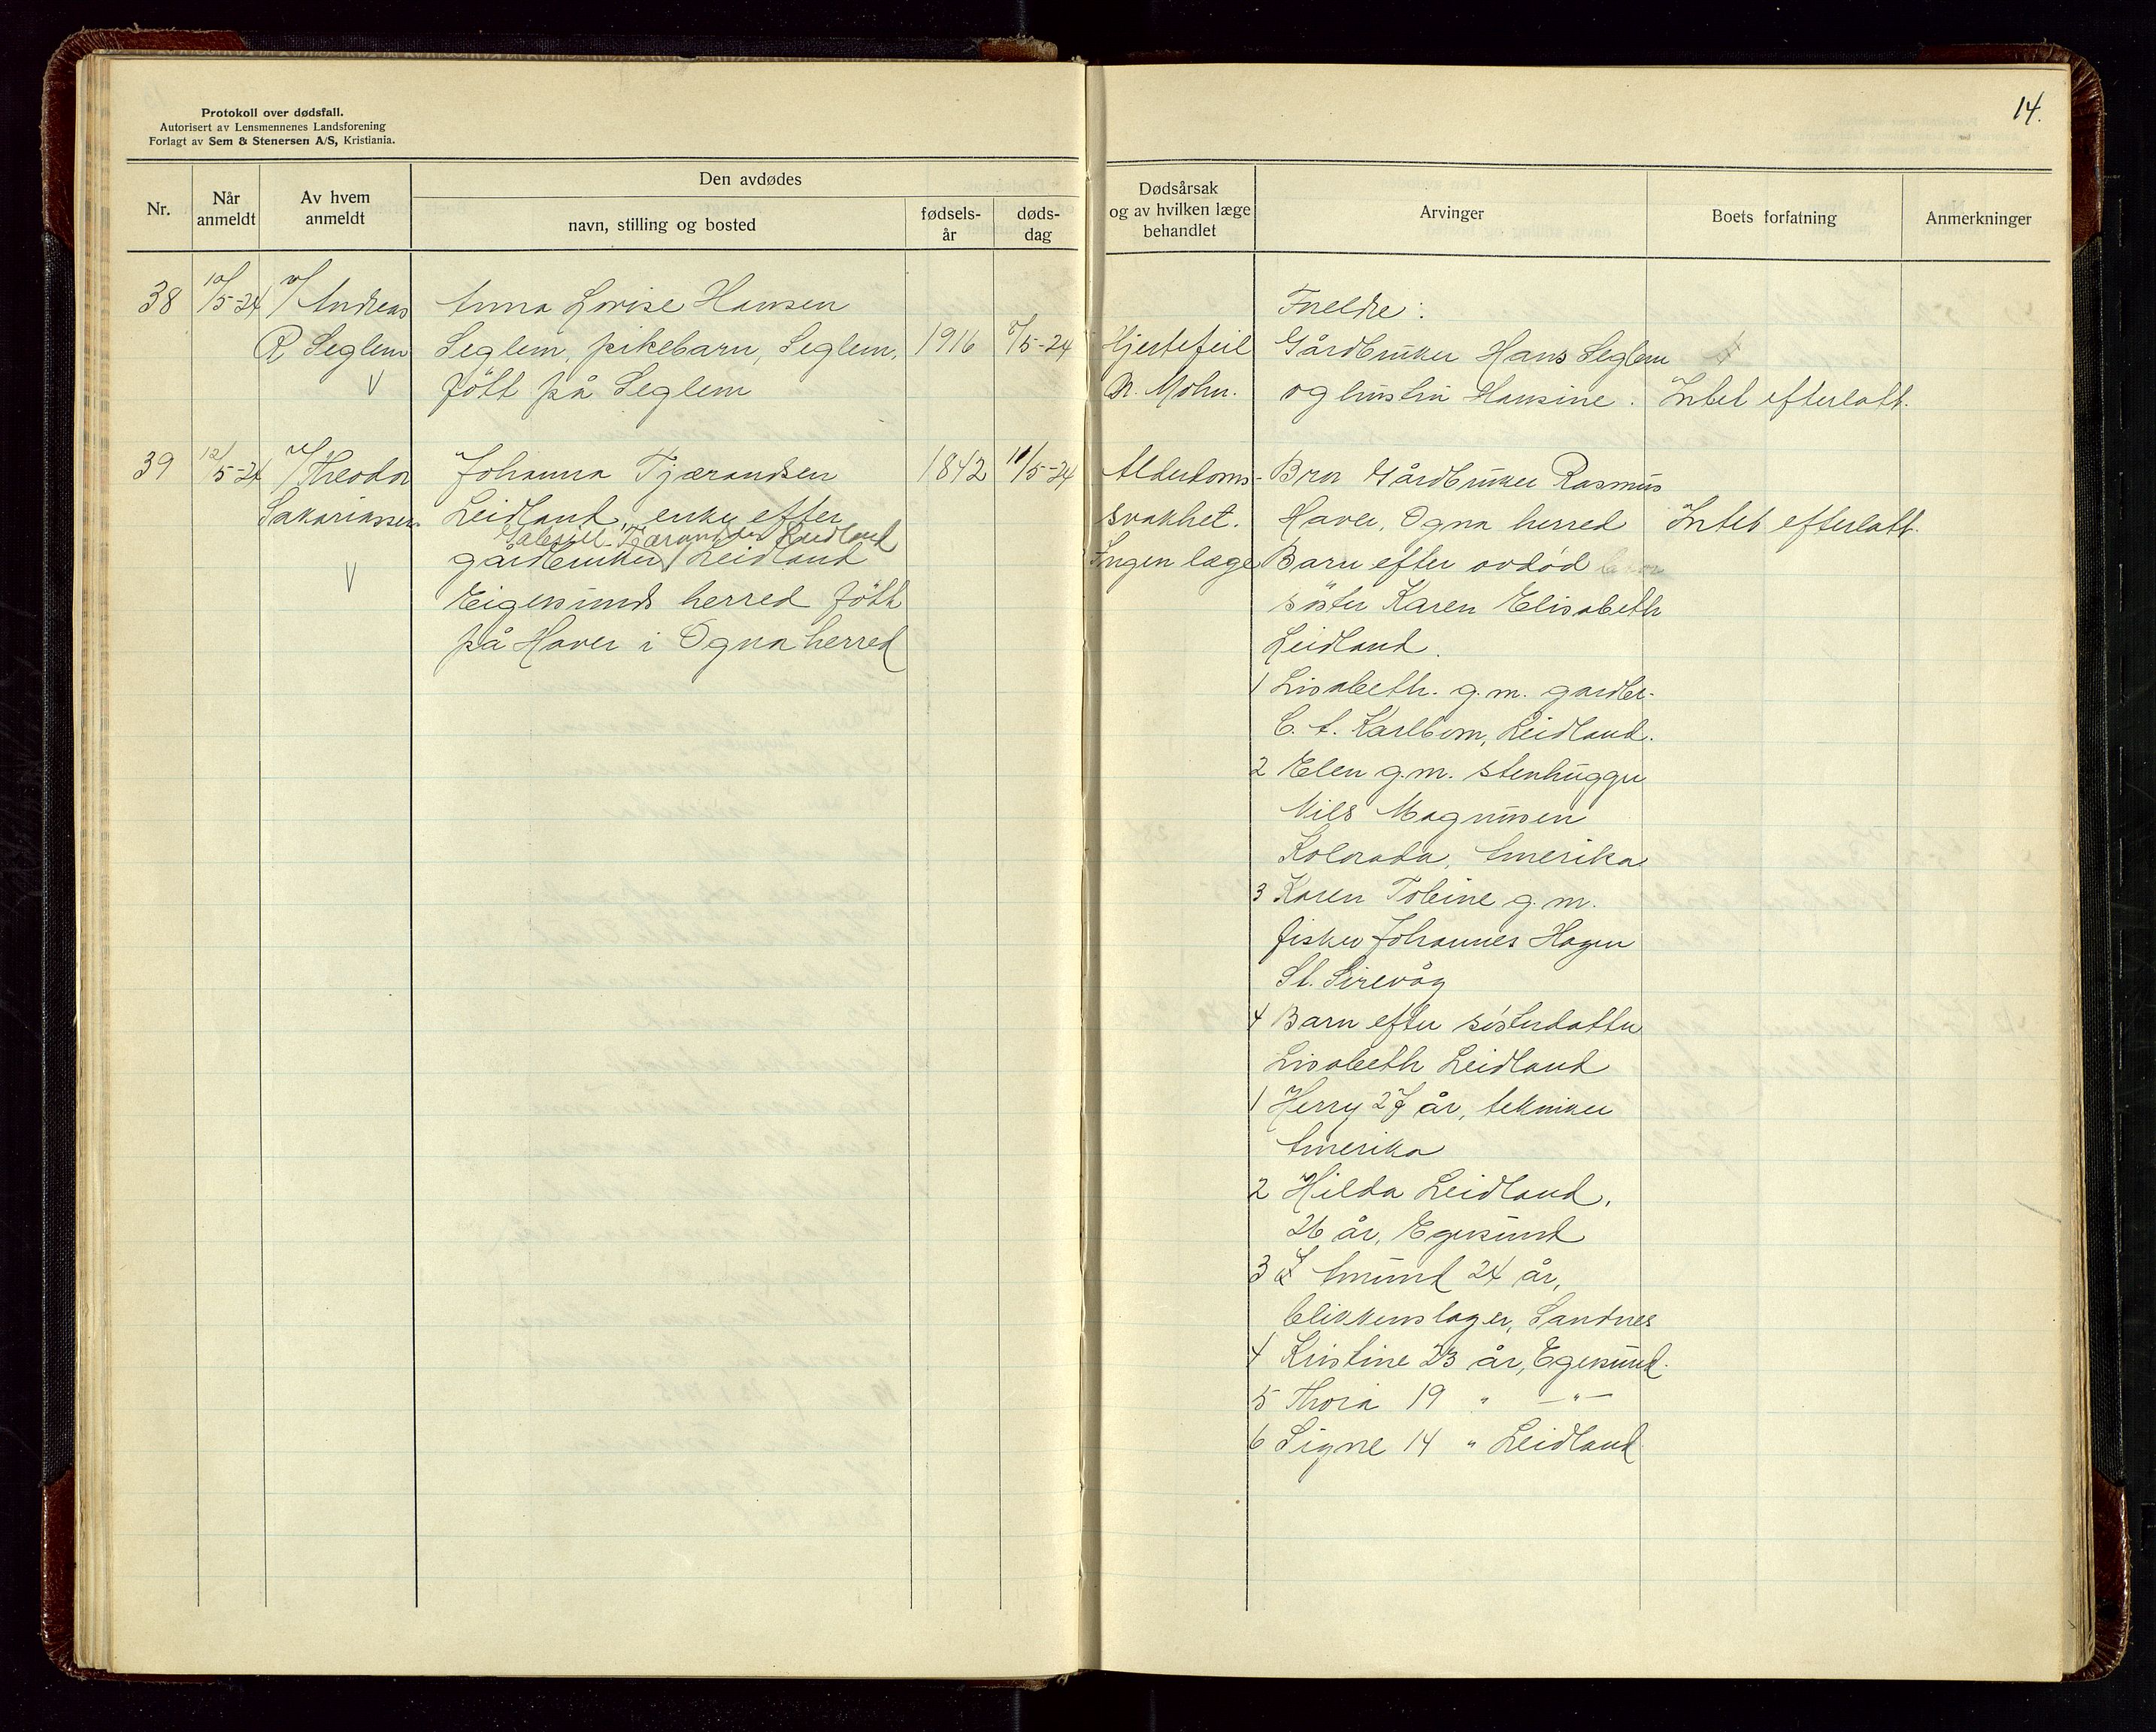 Protokoll over dødsfall.
Autorisert av Lensmennenes Landsforening
Forlagt av Sem & Stenersen A/S, Kristiania.
14.
Nr.
Når anmeldt
Av hvem anmeldt
Den avdødes
navn, stilling og bosted
fødsels-år
døds-dag
Dødsårsak og av hvilken læge behandlet
Arvinger
Boets forfatning
Anmerkninger
38
10/5-24
v/ Andreas
R Seglem
Anna Lovise Hansen
Seglem, pikebarn, Seglem,
født på Seglem
1916
8/5-24
Hjertefeil
Dr. Mohn.
Foreldre:
Gårdbruker Hans Seglem
og hustru Hansine.
Intet efterlatt.
39
12/5-24
v/ Theodor
Sakariassen
Johanna Tjærandsen
Leidland, enke efter
Gabriel Tjærandsen Leidland
gårdbruker Leidland
Eigersunds herred født
på Haver i Ogna herred
1842
11/5-24
Alderdoms-
svakhet.
Ingen læge
Bror Gårdbruker Rasmus
Haver, Ogna herred
Intet efterlatt.
Barn efter avdød
søster Karen Elisabeth
Leidland.
1 Lisabeth. g.m. gardbr.
C. A. Karlbom, Leidland.
2 Elen g.m. stenhugger
Nils Magnusen
Kolorado, Amerika
3 Karen Tobine g.m.
fisker Johannes Hagen
St. Sirevåg
4 Barn efter søsterdatter
Lisabeth Leidland
1 Herry 27 år, tekniker
Amerika
2 Hilda Leidland,
26 år, Egersund
3 Amund 24 år,
blikkenslager, Sandnes
4 Kristine 23 år, Egersund.
5 Thora 19 " —"—
6 Signe 14 " Leidland